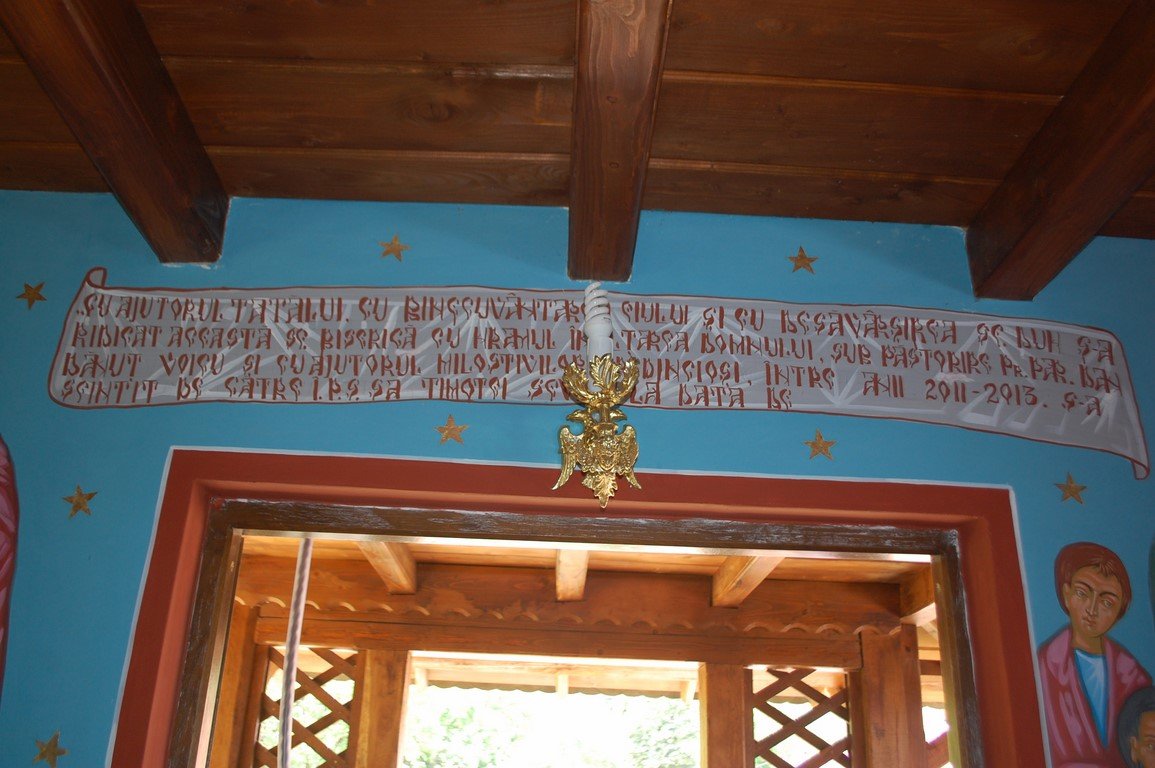 „CU AJUTORUL TATALUI. CU BINECUVÂNTAREA FIULUI ȘI CU DESAVÂRȘIREA SF. DUH S-A
RIDICAT ACEASTA SF. BISERICĂ CU HRAMUL ÎNĂLȚAREA DOMNULUI, SUB PASTORIRE PR. PAR. DAN
DĂNUȚ VOICU ȘI CU AJUTORUL MILOSTIVILOR CREDINCIOȘI, ÎNTRE ANII 2011-2013. S-A
SFINȚIT DE CĂTRE I.P.S.SA TIMOTEI LA DATA DE